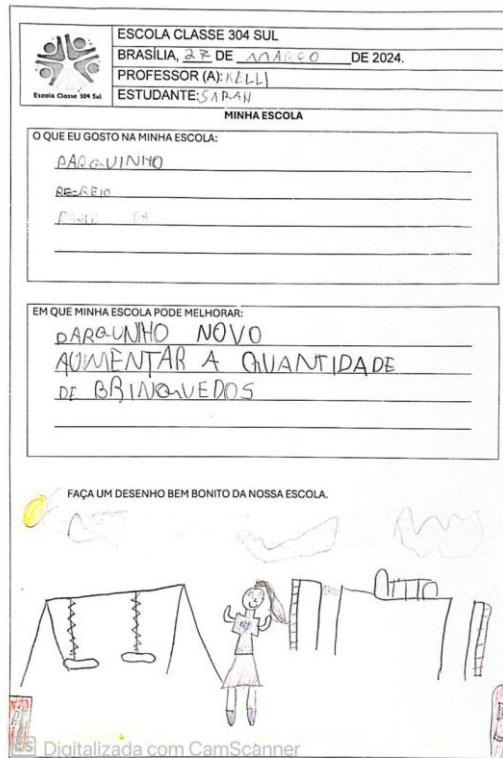 Escola Classe 304 Sul
ESCOLA CLASSE 304 SUL
BRASÍLIA, 27 DE MARÇO DE 2024.
PROFESSOR (A): KELLI
ESTUDANTE: SARAH
MINHA ESCOLA
O QUE EU GOSTO NA MINHA ESCOLA:
PARQUINHO
RECREIO
EM QUE MINHA ESCOLA PODE MELHORAR:
PARQUNHO NOVO
AUMENTAR A QUANTIDADE
DE BRINQUEDOS
FAÇA UM DESENHO BEM BONITO DA NOSSA ESCOLA.
CS Digitalizada com CamScanner